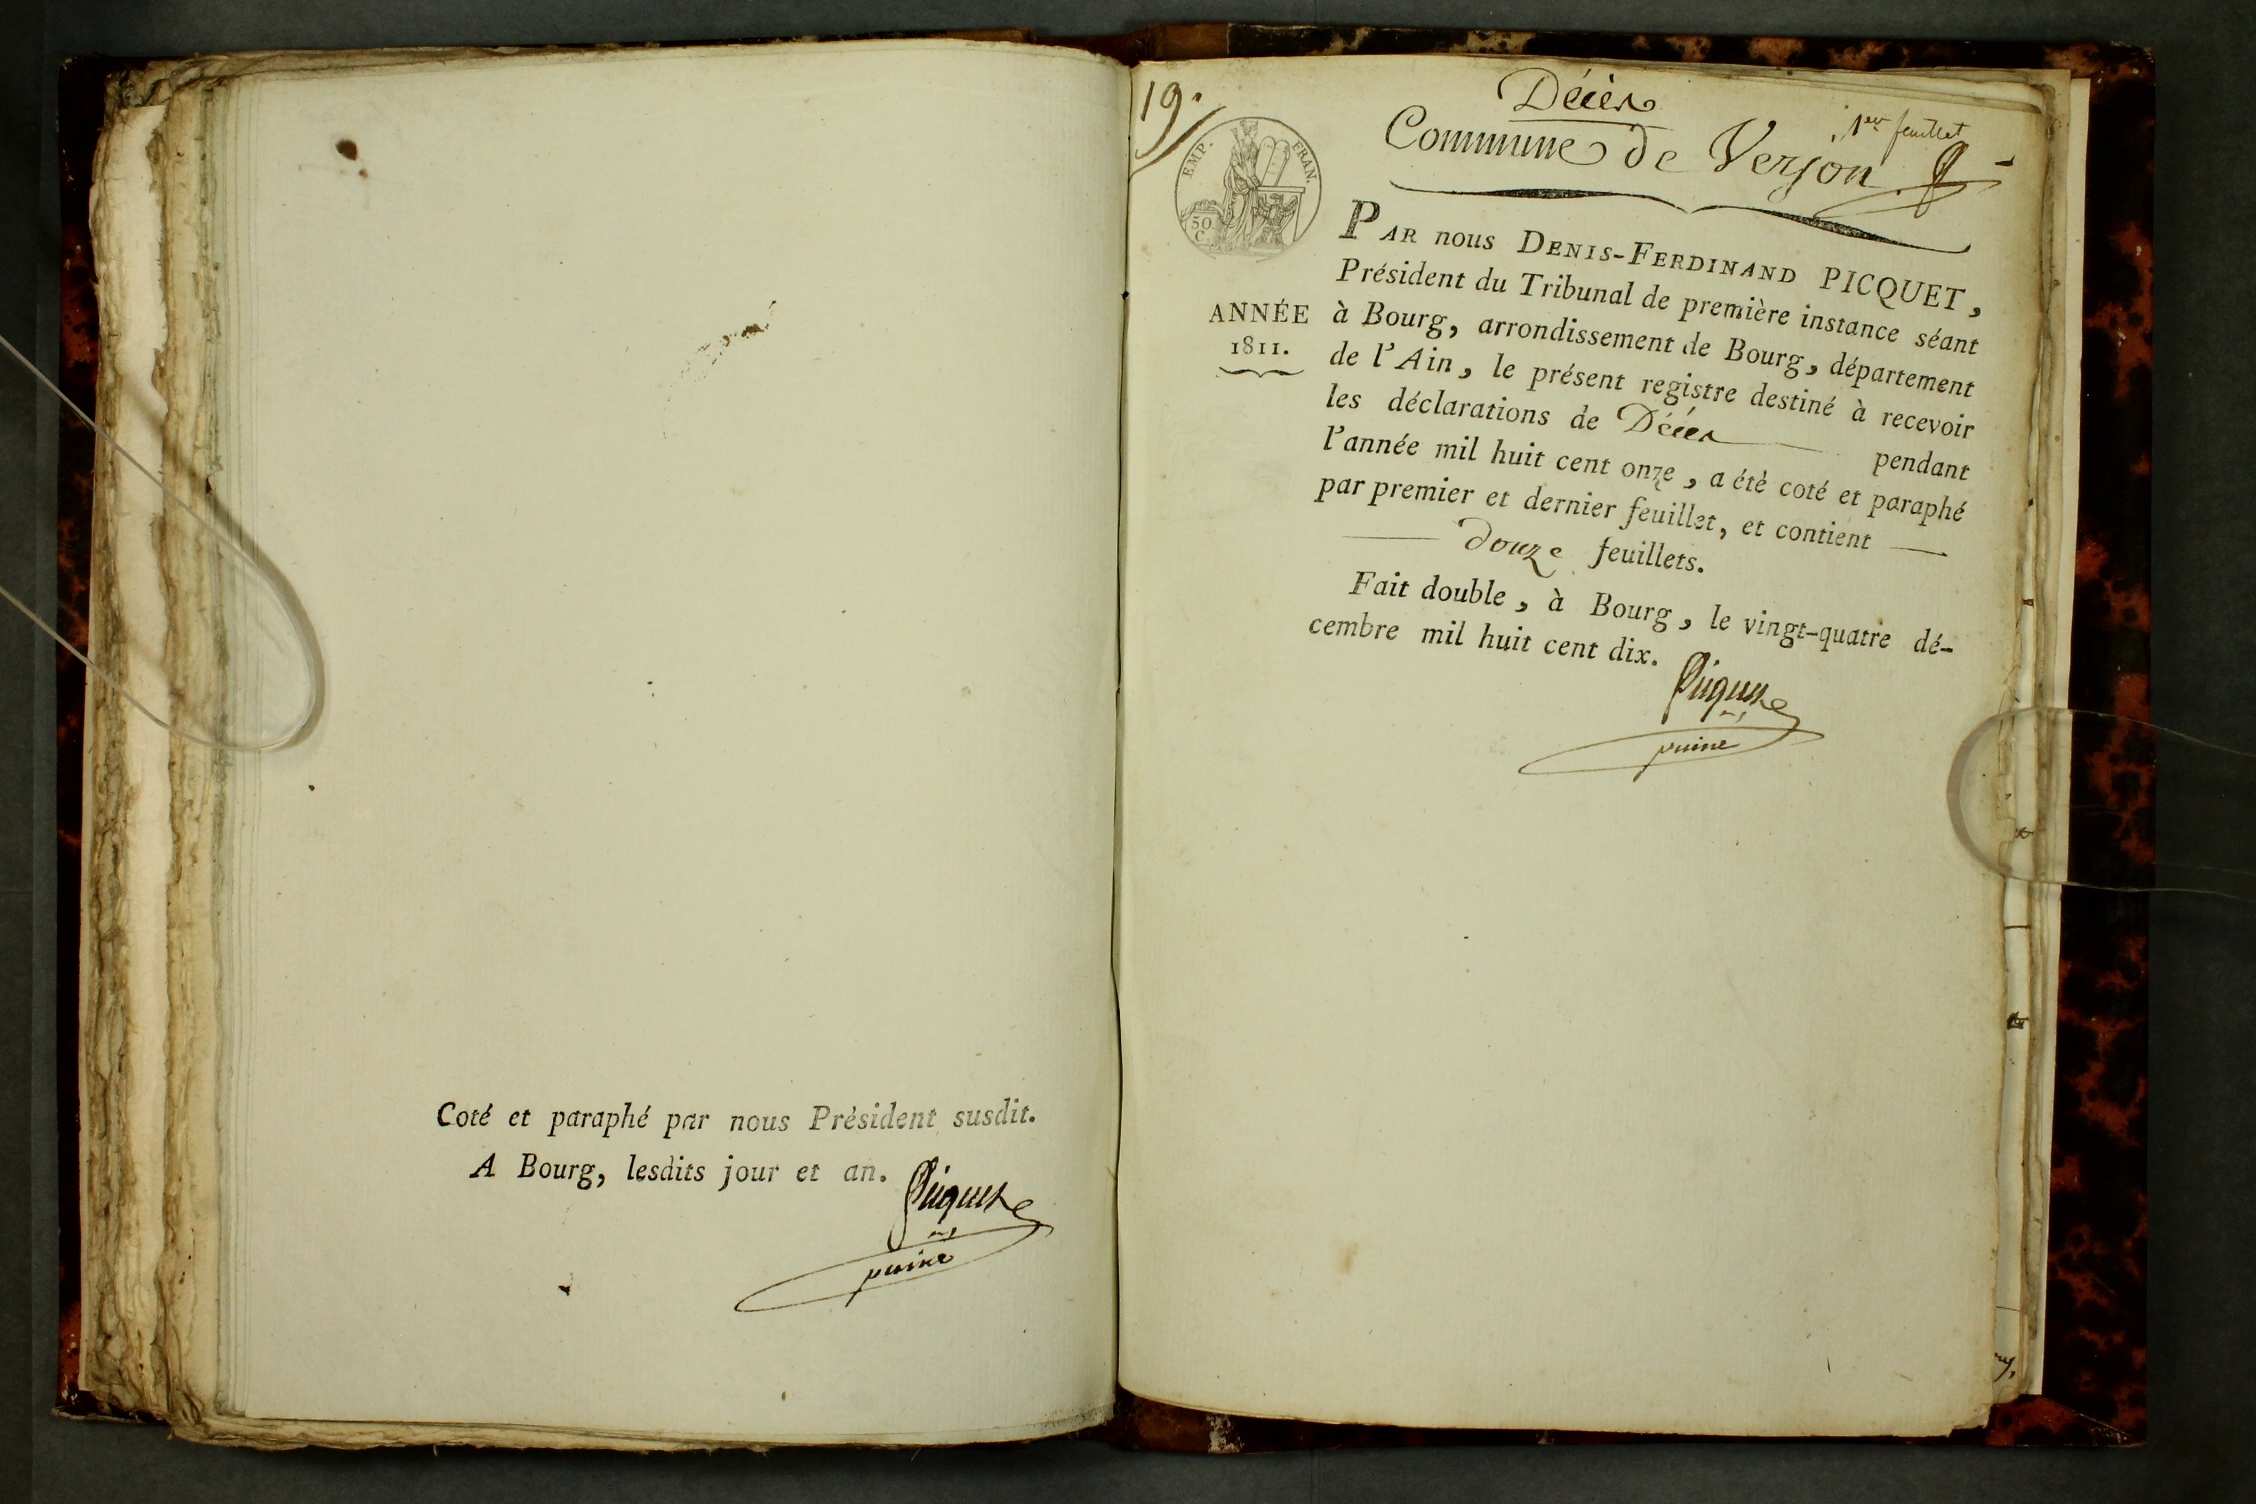 Coté et paraphé par nous Président susdit.
A Bourg, lesdits jour et an.
Picquet
puiné
19.
Décès
1er feuillet
Commune de Verjon
EMP. FRAN.
50
C.
ANNÉE
1811.
PAR nous DENIS-FERDINAND PICQUET,
Président du Tribunal de première instance séant
à Bourg, arrondissement de Bourg, département
de l'Ain, le présent registre destiné à recevoir
les déclarations de Décès pendant
l'année mil huit cent onze, a été coté et paraphé
par premier et dernier feuillet, et contient —
— douze feuillets.
Fait double, à Bourg, le vingt-quatre dé-
cembre mil huit cent dix.
Picquet
puiné